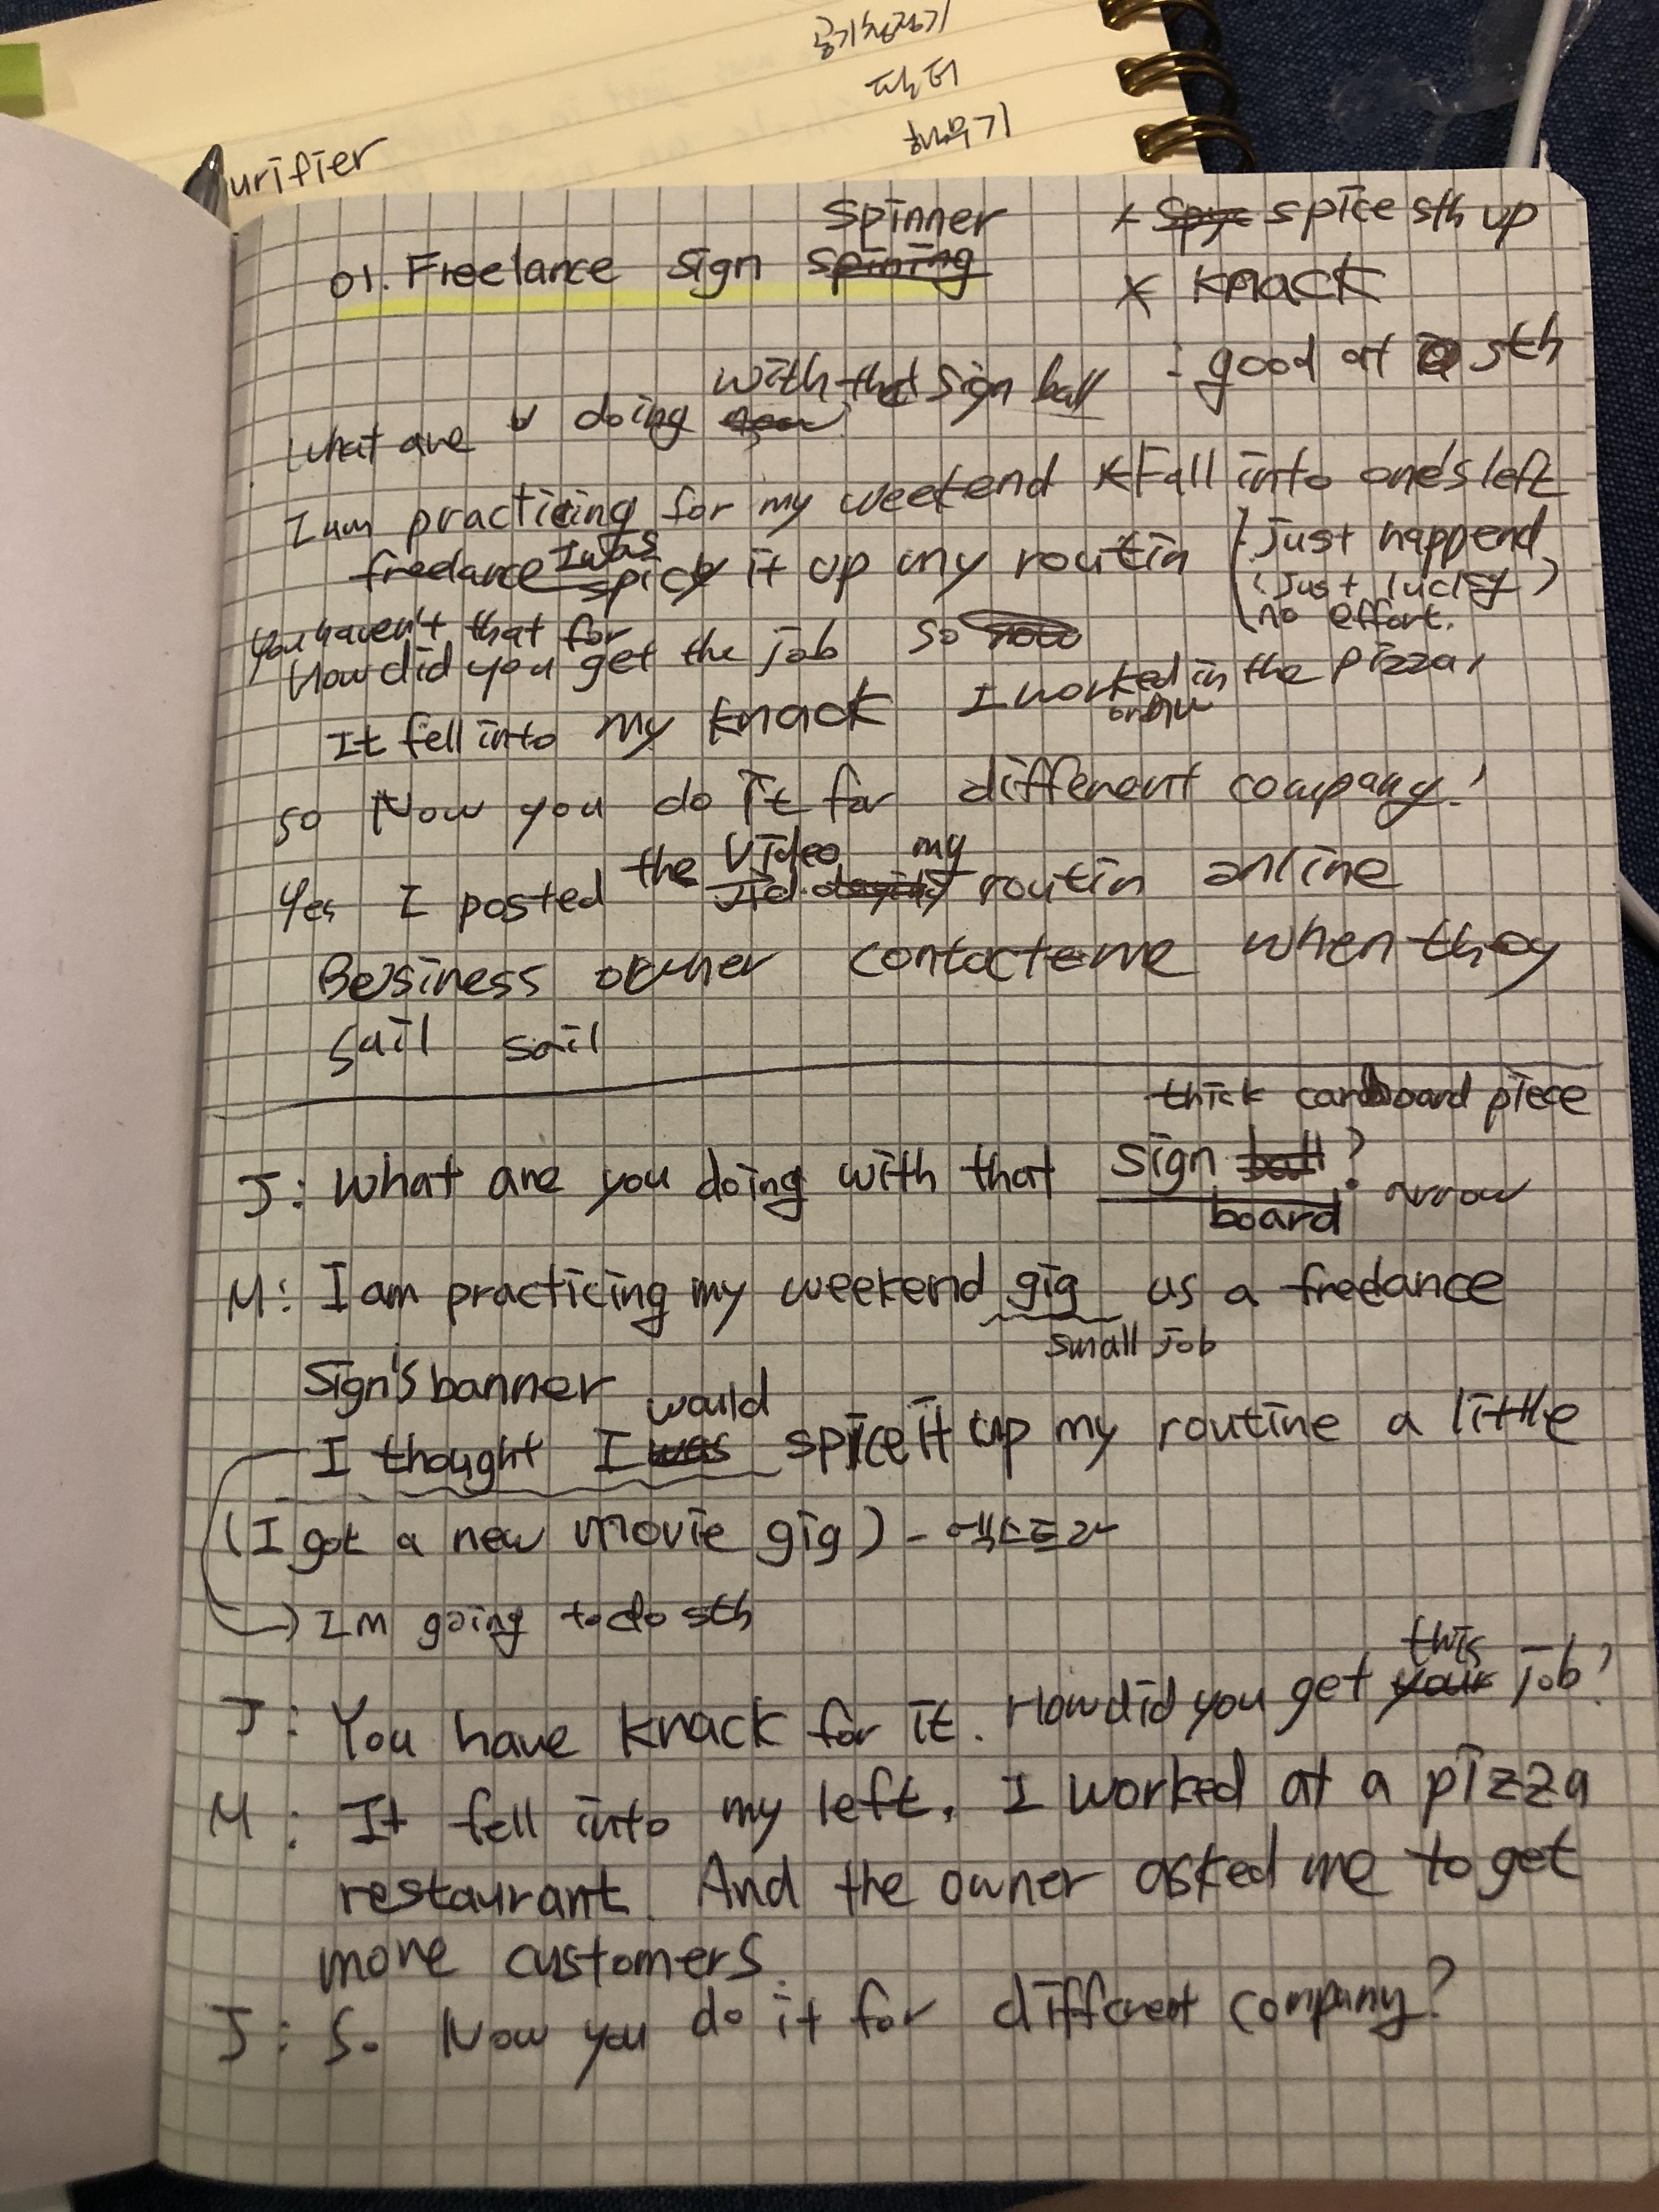 공기청정기
필터
채우기
urifier
spinner
01. Freelance sign spining
* spyc spice sth up
* knack
: good at sth
with that sign ball
what are u doing
I am practicing for my weekend
* Fall into one's left
just happend
(just lucky)
no effort.
I was
freelance spicy it up my routin
you haven't that for
How did you get the job so now
It fell into my knack I worked in the pizza,
so Now you do it for different company?
Yes I posted the video my routin online
Besiness owner contacteme when they
sail sail
thick cardboard piece
J: What are you doing with that sign ball?
board arrow
M: I am practicing my weekend gig as a freelance
small job
sign's banner
would
I thought I was spice it up my routine a little
(I got a new movie gig) - 엑스트라
→ I'm going to do sth
this
J: You have knack for it. How did you get your job?
M: It fell into my left. I worked at a pizza
restaurant. And the owner asked me to get
more customers.
J: So Now you do it for different company?